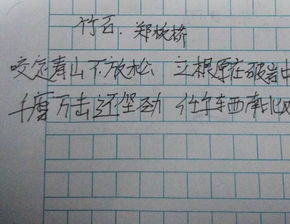 竹石. 郑板桥
咬定青山不放松 立根原在破岩中
千磨万击还坚劲 任尔东西南北风